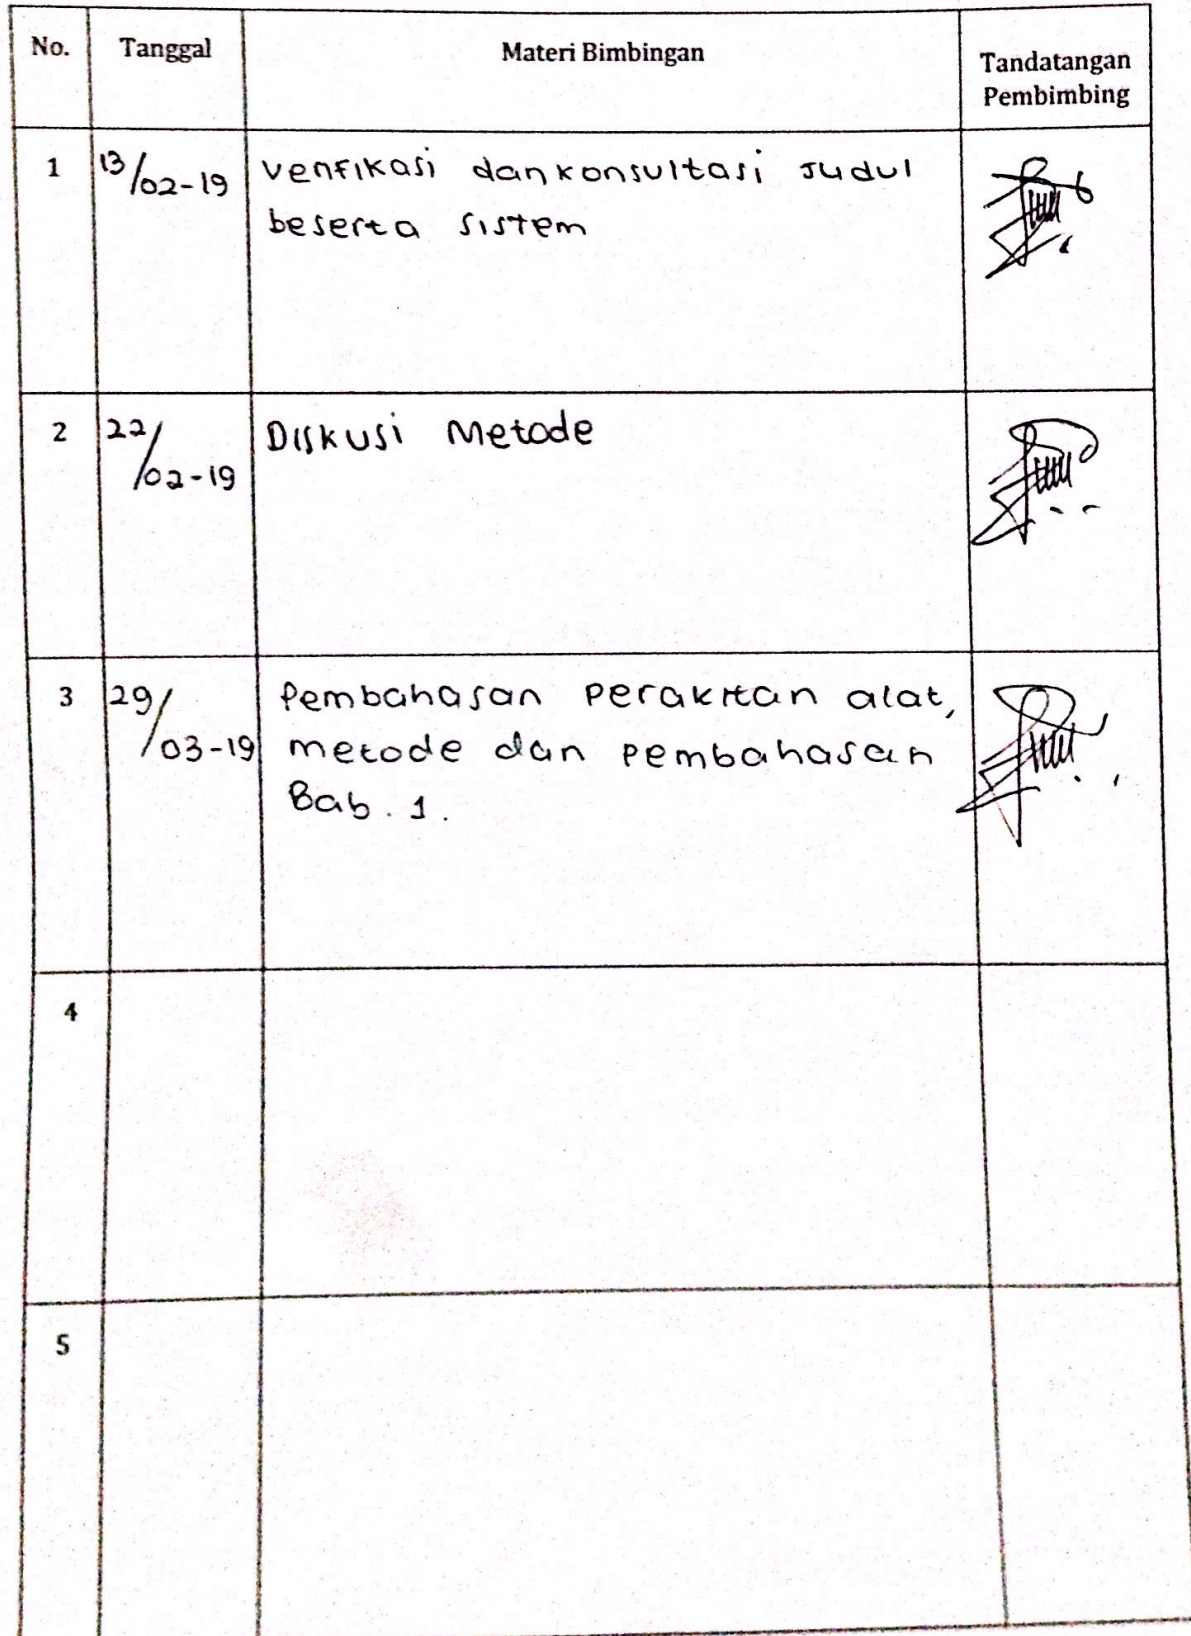 No. Tanggal Materi Bimbingan Tandatangan
Pembimbing
1 13/02-19 Verifikasi dan konsultasi Judul
beserta sistem
2 22/02-19 Diskusi Metode
3 29/03-19 Pembahasan Perakitan alat,
metode dan Pembahasan
Bab. 1.
4
5